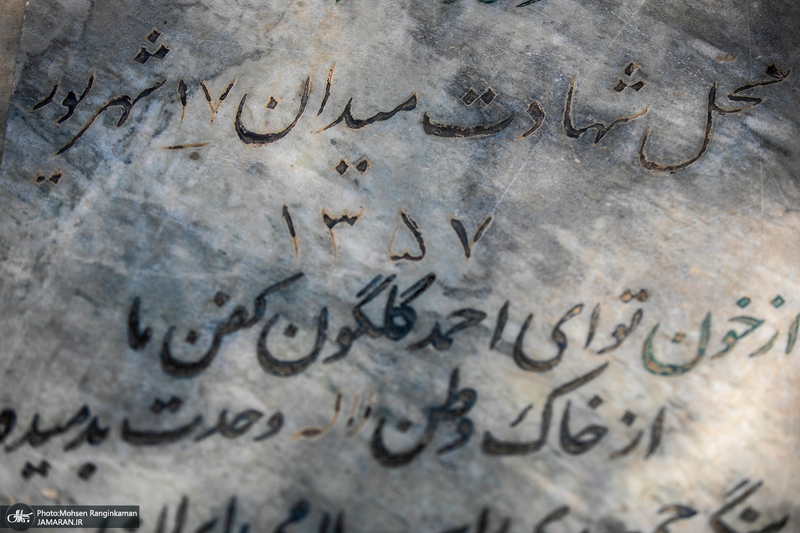 محل شهادت میدان ۱۷ شهریور
۱۳۵۷
از خون تو ای احمد گلگون کفن ما
از خاک وطن لاله وحدت بدمیده
جمهوری اسلامی
Photo:Mohsen Ranginkaman
JAMARAN.IR